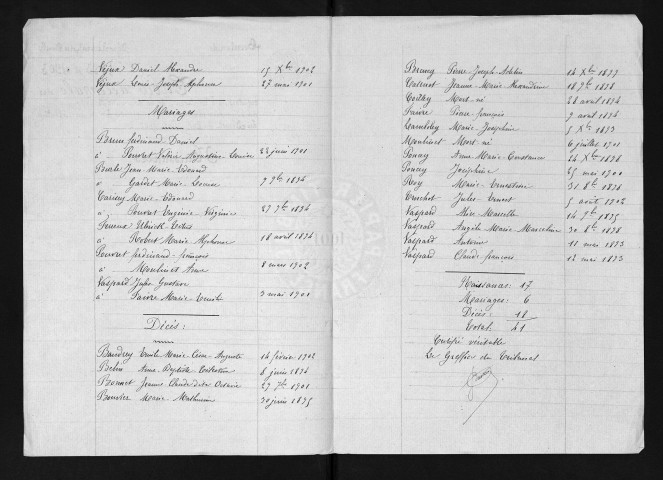 Vejux Daniel Alexandre 15 Xbre 1902
Vejux Louis Joseph Alphonse 27 mai 1901
Mariages
Brun ferdinand Daniel
à Pourcet Victorie Augustine Louise 22 juin 1901
Burle Jean Marie Edouard
à Gaidet Marie Louise 7 9bre 1874
Marie Edouard
à Pourcet Eugénie Virginie 27 7bre 1874
à Robert Marie Alphonse 18 avril 1874
Pourcet ferdinand françois
à Moulinet Anne 8 mars 1902
Vaspard Jules Gustave
à Faivre Marie Emilie 3 mai 1901
Décès :
Baudrey Emile Marie César Auguste 14 février 1902
Belin Anne Baptiste 6 juin 1874
Bonnet Jeanne Claude dite Octavie 27 7bre 1901
Bouvier Marie Mathurin 30 juin 1875
Pierre Joseph 14 Xbre 1877
Jeanne Marie Alexandrine 18 7bre 1878
Mort né 28 avril 1874
Faivre Pierre françois 9 avril 1874
Marie Joséphine 5 Xbre 1873
Moulinet Mort né 6 juillet 1901
Anne Marie Constance 24 Xbre 1878
Joséphine 25 mai 1901
Roy Marie Ernestine 31 8bre 1874
Truchot Jules Ernest 5 août 1902
Vaspard Alice Marcelle 14 7bre 1875
Vaspard Angèle Marie Marceline 30 8bre 1878
Vaspard Antoine 11 mai 1873
Vaspard Claude françois 12 mai 1873
Naissances : 17
Mariages : 6
Décès : 18
Total : 41
Certifié véritable
Le Greffier du Tribunal